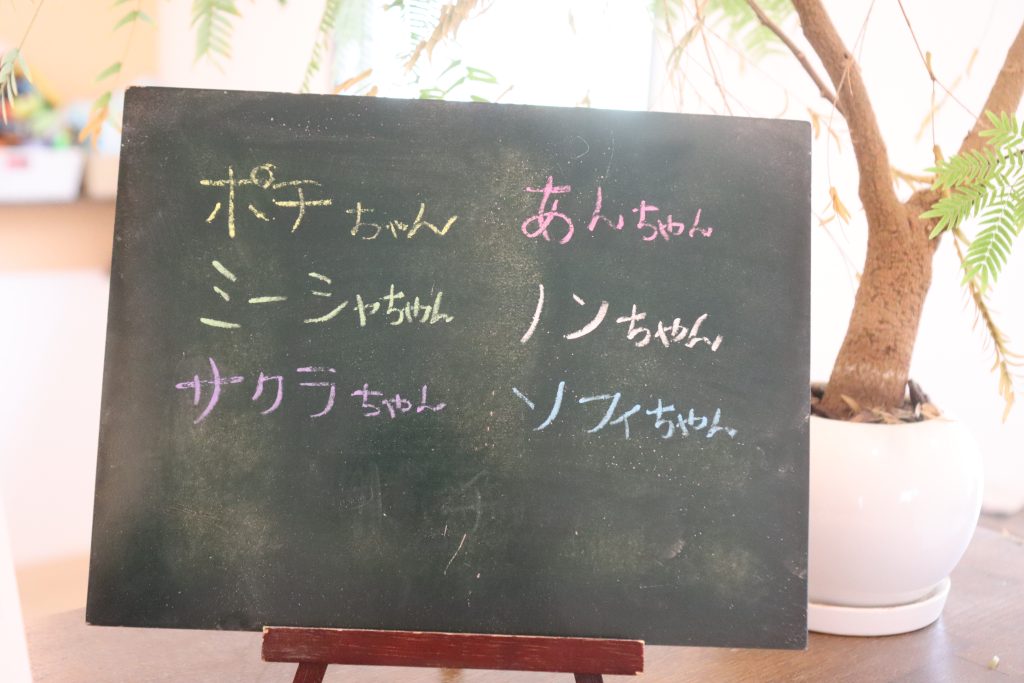 ポチちゃん
ミーシャちゃん
サクラちゃん
あんちゃん
ノンちゃん
ソフィちゃん